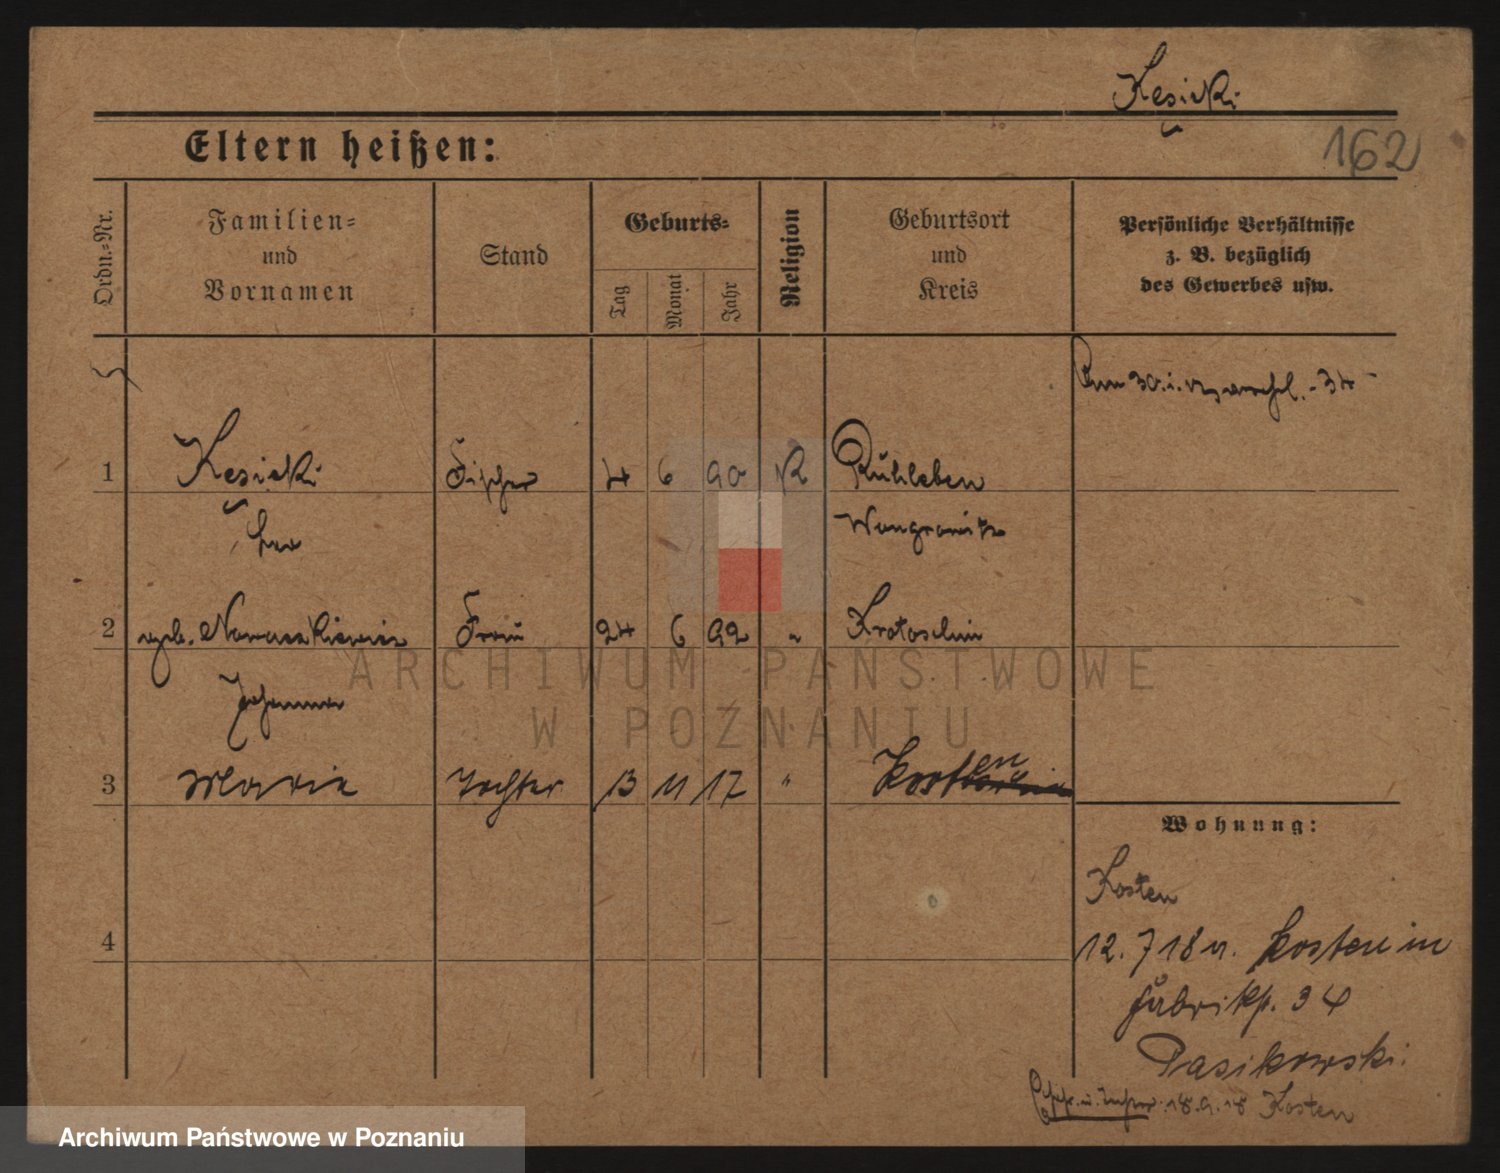 Kesicki
Eltern heißen:
162
Ordn.-Nr.
Familien-
und
Vornamen
Stand
Geburts-
Tag
Monat
Jahr
Religion
Geburtsort
und
Kreis
Persönliche Verhältnisse
z. B. bezüglich
des Gewerbes usw.
34
1 Kesicki Fischer 4 6 90 K Ruhleben
Leo Wongrowitz
2 geb. Nowaczkiewicz Frau 24 6 92 " Krotoschin
Johanna
3 Marie Tochter 13 11 17 " Kosten
Wohnung:
Kosten
4
12. 7 18 n. Kosten in
Fabrikst. 34
Pasikowski
18.9.18 Kosten
ARCHIWUM PAŃSTWOWE
W POZNANIU
Archiwum Państwowe w Poznaniu